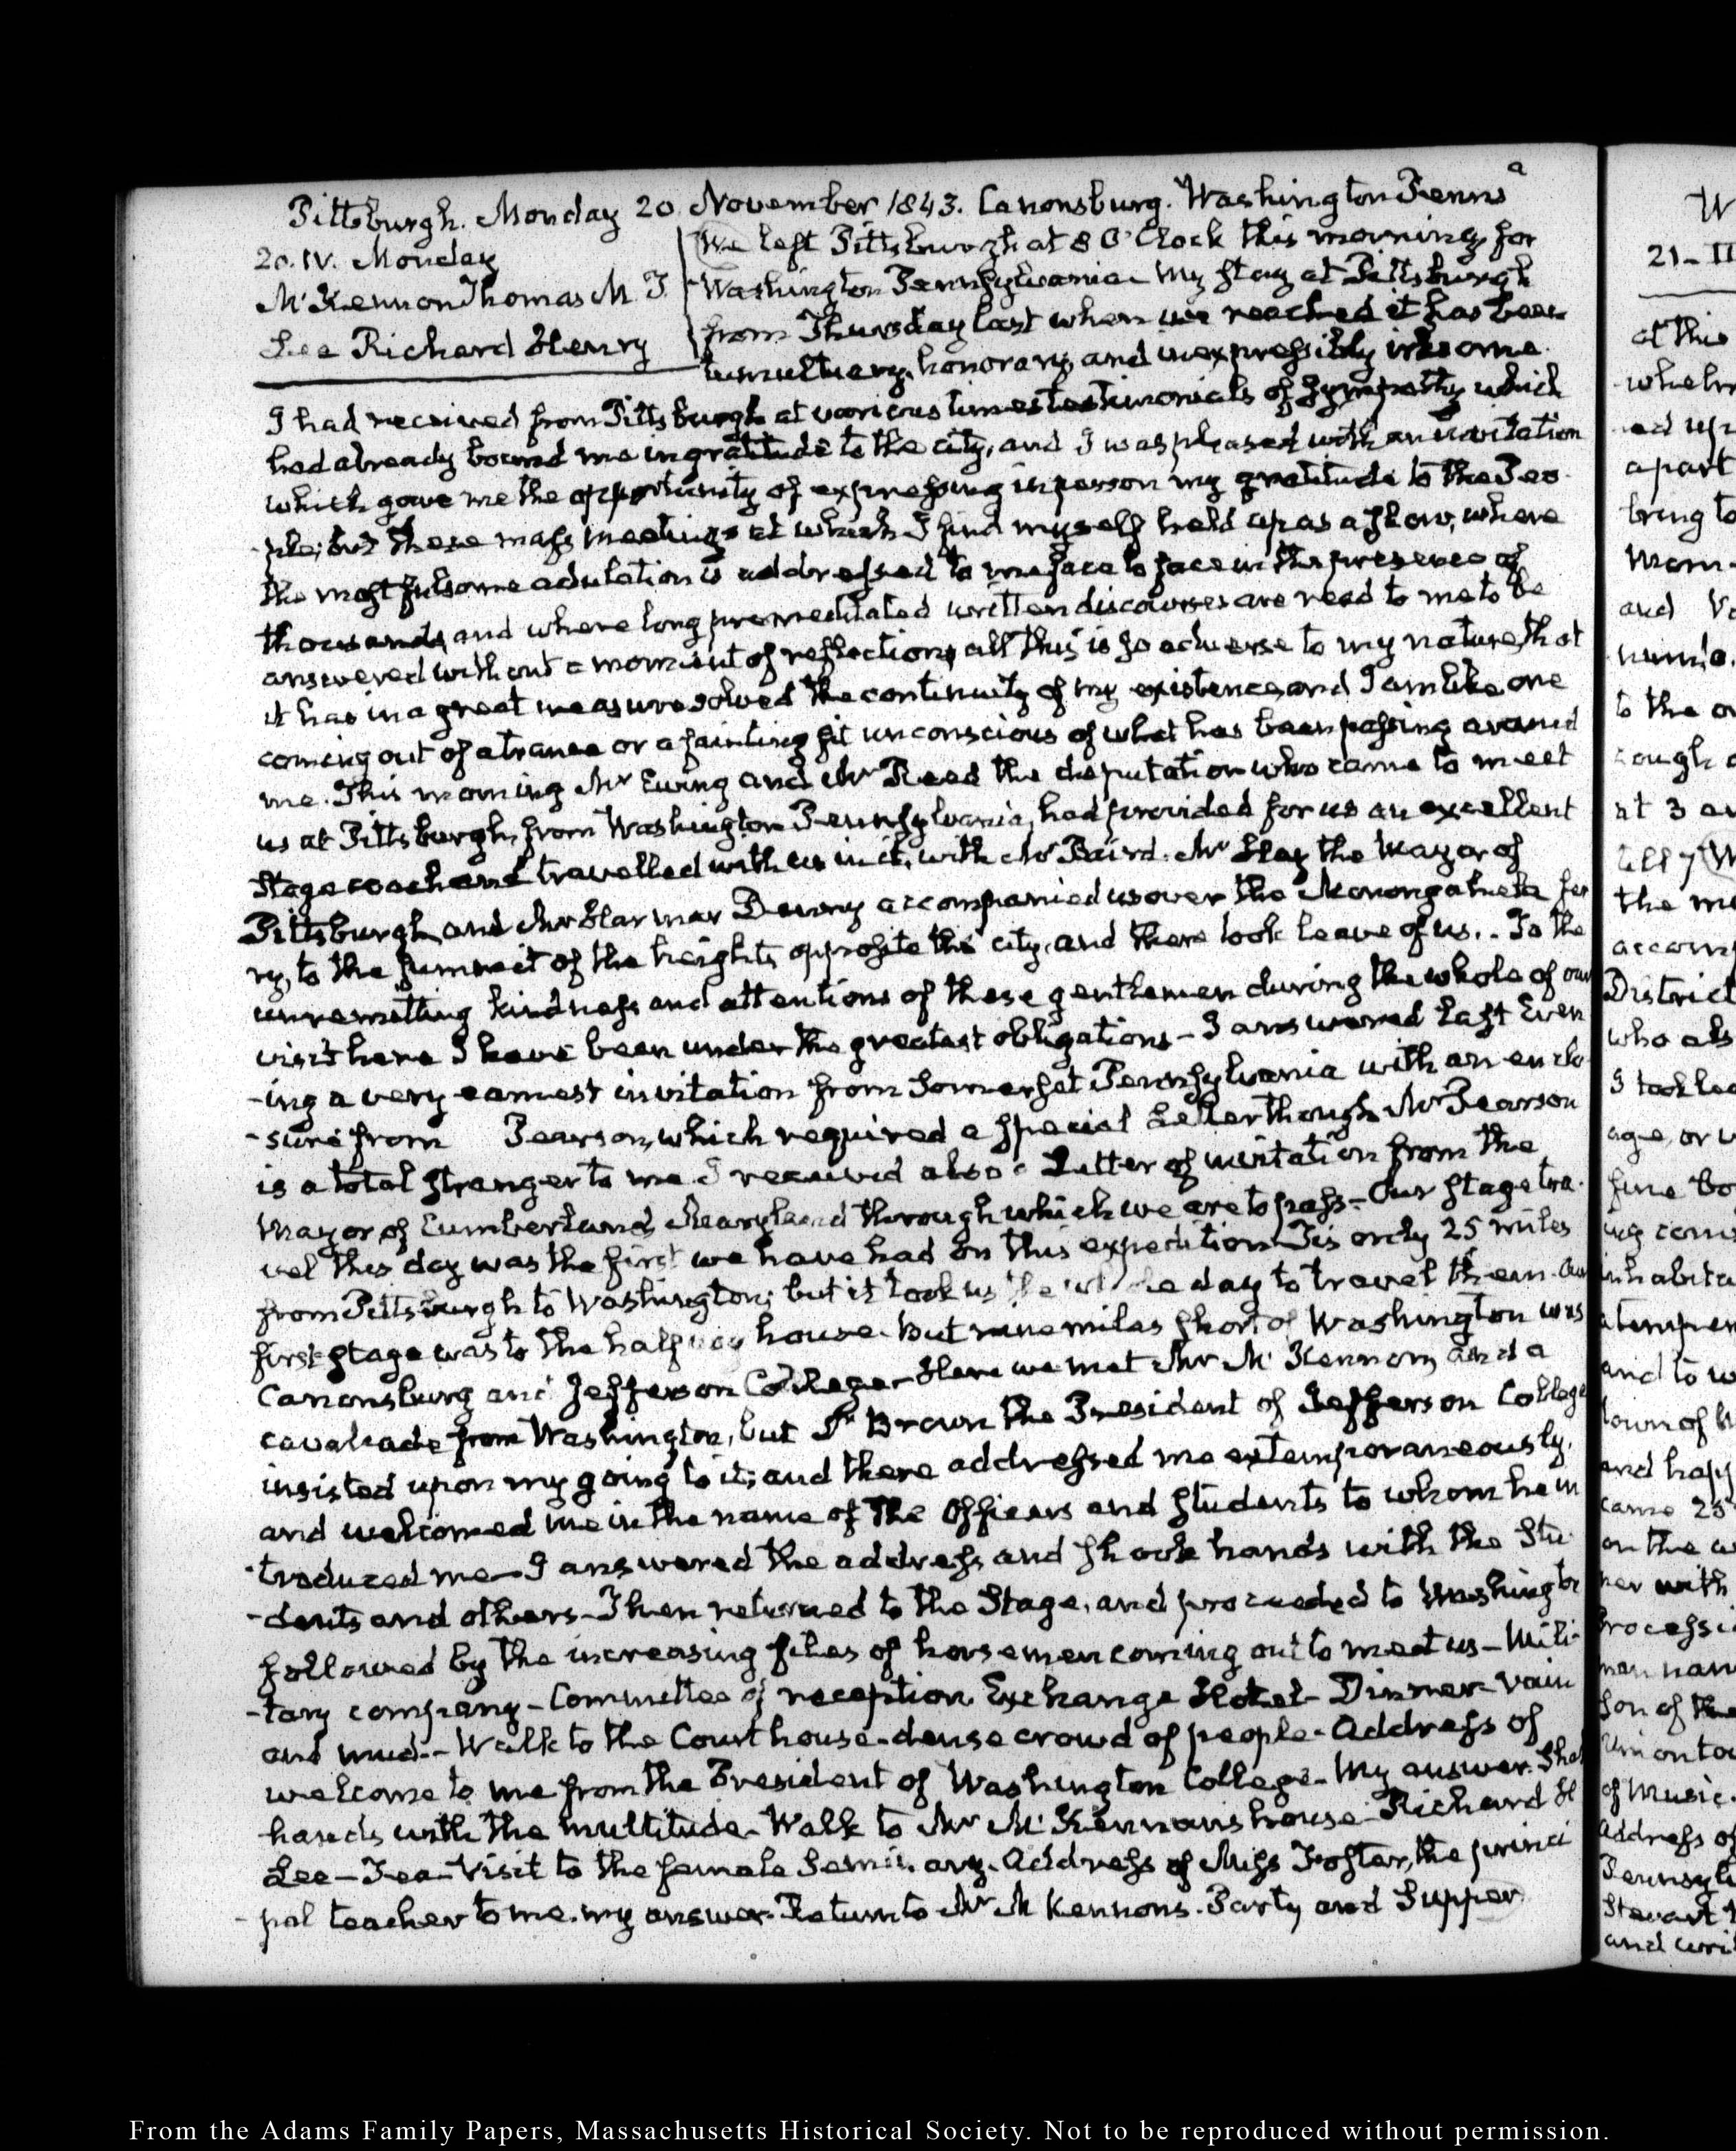 Pittsburgh. Monday 20 November 1843. Canonsburg. Washington Penns^a
20. IV. Monday
M'Kennon Thomas M. T.
Lee Richard Henry
We left Pittsburgh at 8 O'Clock this morning for
Washington Pennsylvania. My stay at Pittsburgh
from Thursday last when we reached it has been
tumultuary, honorary, and inexpressibly irksome.
I had received from Pittsburgh at various times testimonials of sympathy which
had already bound me in gratitude to the city, and I was pleased with an invitation
which gave me the opportunity of expressing in person my gratitude to the Peo-
-ple; but these mass meetings at which I find myself held up as a show, where
the most fulsome adulation is addressed to me face to face in the presence of
thousands, and where long premeditated written discourses are read to me to be
answered without a moment of reflection, all this is so adverse to my nature, that
it has in a great measure solved the continuity of my existence, and I am like one
coming out of a trance or a fainting fit unconscious of what has been passing around
me. This morning Mr Ewing and Mr Reed the deputation who came to meet
us at Pittsburgh, from Washington Pennsylvania, had provided for us an excellent
Stage coach and travelled with us in it, with Mr Baird. Mr Hay the Mayor of
Pittsburgh, and Mr Harmar Denny accompanied us over the Monongahela fer
ry, to the summit of the heights opposite the city, and there took leave of us.. To the
unremitting kindness and attentions of these gentlemen during the whole of our
visit here I have been under the greatest obligations - I answered last Even
-ing a very earnest invitation from Somerset Pennsylvania with an enclo-
-sure from Pearson, which required a special Letter though Mr Pearson
is a total stranger to me. I received also a Letter of invitation from the
Mayor of Cumberland Maryland through which we are to pass - Our stage tra-
vel this day was the first we have had on this expedition. Tis only 25 miles
from Pittsburgh to Washington; but it took us the whole day to travel them. Our
first stage was to the half way house. But nine miles short of Washington was
Canonsburg and Jefferson College - Here we met Mr M'Kennon, and a
cavalcade from Washington, but Dr Brown the President of Jefferson College
insisted upon my going to it; and there addressed me extemporaneously,
and welcomed me in the name of the Officers and Students to whom he in
-troduced me - I answered the address, and shook hands with the Stu-
-dents and others - Then returned to the Stage, and proceeded to Washington
followed by the increasing files of horsemen coming out to meet us - Mili-
-tary company - Committee of reception. Exchange Hotel - Dinner - rain
and mud - Walk to the Court house - dense crowd of people - Address of
welcome to me from the President of Washington College - My answer. Sha
hands with the multitude - Walk to Mr M'Kennans house - Richard H
Lee - Tea - Visit to the female Seminary. Address of Miss Foster, the princi
-pal teacher to me. my answer. Return to Mr M Kennons. Party and Supper
W
21 - II
at this
apart
bring to
and
to the
at 3
till 7
the
District
who
I took
age, or
fine
and to
town of
and happ
came 25
on the
her with
son of the
of Music.
Address of
Pennsylv
Stewart
From the Adams Family Papers, Massachusetts Historical Society. Not to be reproduced without permission.